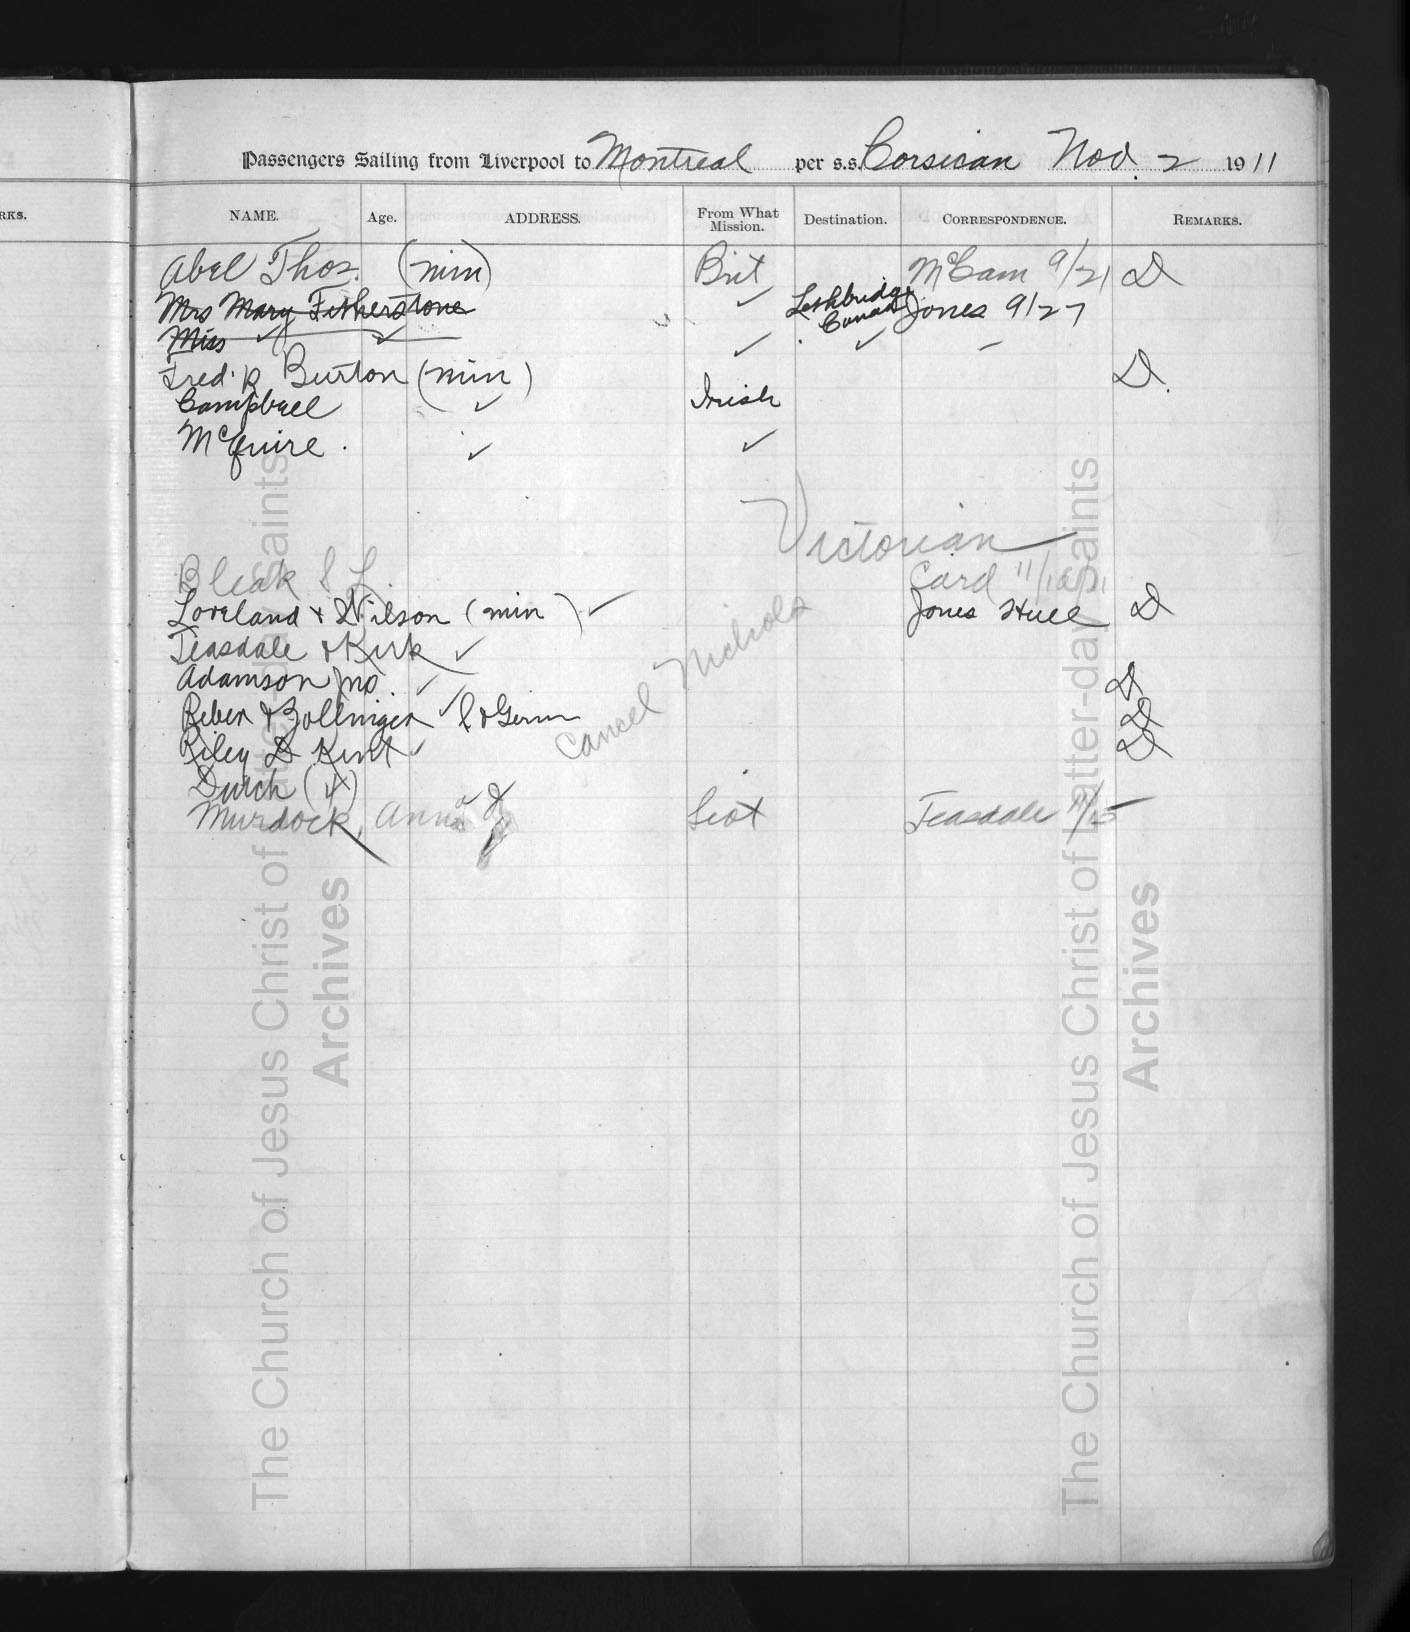 RKS.
Passengers Sailing from Liverpool to Montreal per s.s. Corsican Nov. 2 1911
NAME. Age. ADDRESS. From What Mission. Destination. CORRESPONDENCE. REMARKS.
Abel Thos. (min) Brit McCam 9/21 D
Mrs Mary Fetherstone ✓ Lethbridge Canada Jones 9/27
Miss ✓ ✓ ✓ ✓ –
Fred. R Burton (min) D.
Campbell ✓ Irish
McGuire. ✓ ✓
Victorian
Bleak S L Card
Loveland & Wilson (min) ✓ Jones Hull D
Teasdale & Kirk ✓
Adamson Jno. ✓ D
Reber & Bollinger ✓ S & Germ D
Riley D Kent ✓ D
Cancel Nichols
Dutch (4)
Murdock, Anna Scot Teasdale 11/15
The Church of Jesus Christ of Latter-day Saints
Archives
The Church of Jesus Christ of Latter-day Saints
Archives